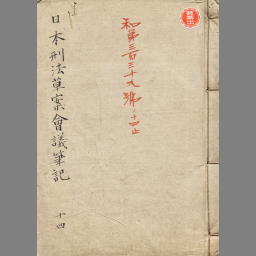 和第三百三十九號ノ十四止
日本刑法草案會議筆記
十四